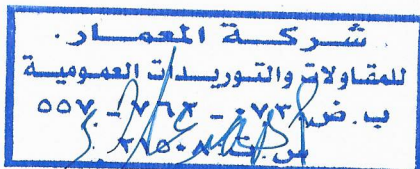 شركة المعمار.
للمقاولات والتوريدات العمومية
ب. ض
س. ت